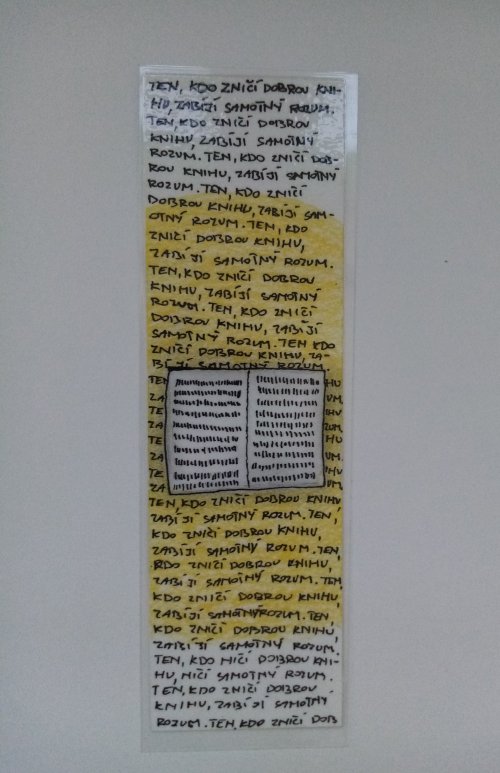 TEN, KDO ZNIČÍ DOBROU KNI-
HU, ZABÍJÍ SAMOTNÝ ROZUM.
TEN, KDO ZNIČÍ DOBROU
KNIHU, ZABÍJÍ SAMOTNÝ
ROZUM. TEN, KDO ZNIČÍ DOB-
ROU KNIHU, ZABÍJÍ SAMOTNÝ
ROZUM. TEN, KDO ZNIČÍ
DOBROU KNIHU, ZABÍJÍ SAM-
OTNÝ ROZUM. TEN, KDO
ZNIČÍ DOBROU KNIHU,
ZABÍJÍ SAMOTNÝ ROZUM.
TEN, KDO ZNIČÍ DOBROU
KNIHU, ZABÍJÍ SAMOTNÝ
ROZUM. TEN, KDO ZNIČÍ
DOBROU KNIHU, ZABÍJÍ
SAMOTNÝ ROZUM. TEN KDO
ZNIČÍ DOBROU KNIHU, ZA-
BÍJÍ SAMOTNÝ ROZUM.
TEN HU
ZA UM,
TE IHU
ZA ZUM,
TE HU
ZA UM.
TE HU
ZA UM.
TEN, KDO ZNIČÍ DOBROU KNIHU
ZABÍJÍ SAMOTNÝ ROZUM. TEN,
KDO ZNIČÍ DOBROU KNIHU,
ZABÍJÍ SAMOTNÝ ROZUM. TEN,
KDO ZNIČÍ DOBROU KNIHU,
ZABÍJÍ SAMOTNÝ ROZUM. TEN,
KDO ZNIČÍ DOBROU KNIHU,
ZABÍJÍ SAMOTNÝ ROZUM. TEN,
KDO ZNIČÍ DOBROU KNIHU,
ZABÍJÍ SAMOTNÝ ROZUM.
TEN, KDO NIČÍ DOBROU KNI-
HU, NIČÍ SAMOTNÝ ROZUM.
TEN, KDO ZNIČÍ DOBROU
KNIHU, ZABÍJÍ SAMOTNÝ
ROZUM. TEN, KDO ZNIČÍ DOB